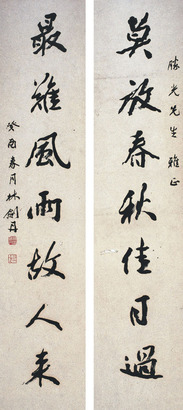 勝光先生雅正
莫放春秋佳日過
最難風雨故人來
癸酉春月林劍丹